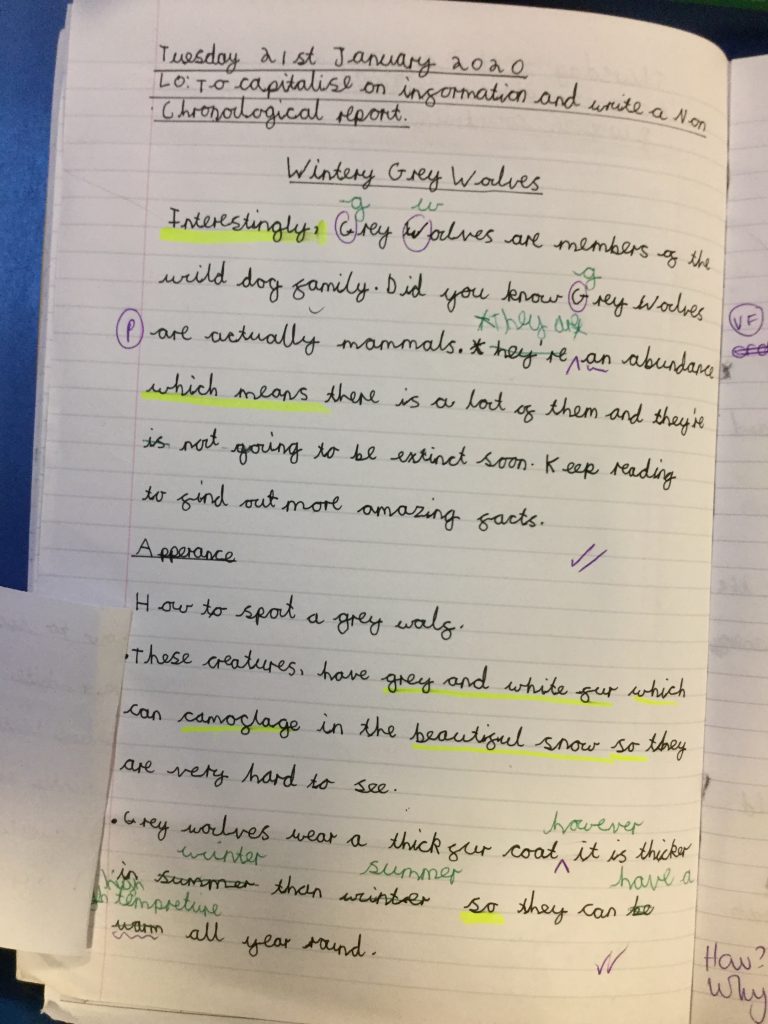 Tuesday 21st January 2020
LO: To capitalise on information and write a Non
Chronological report.
Wintery Grey Wolves
g w
Interestingly, Grey Wolves are members of the
g
wild dog family. Did you know Grey Wolves
*they are
P are actually mammals. * they're an abundance
VF
which means there is a lot of them and they're
is not going to be extinct soon. Keep reading
to find out more amazing facts.
Apperance
How to spot a grey wolf.
• These creatures, have grey and white fur which
can camoflage in the beautiful snow so they
are very hard to see.
however
• Grey wolves wear a thick fur coat it is thicker
winter summer have a
in summer than winter so they can be
high tempreture
warm all year round.
How?
Why